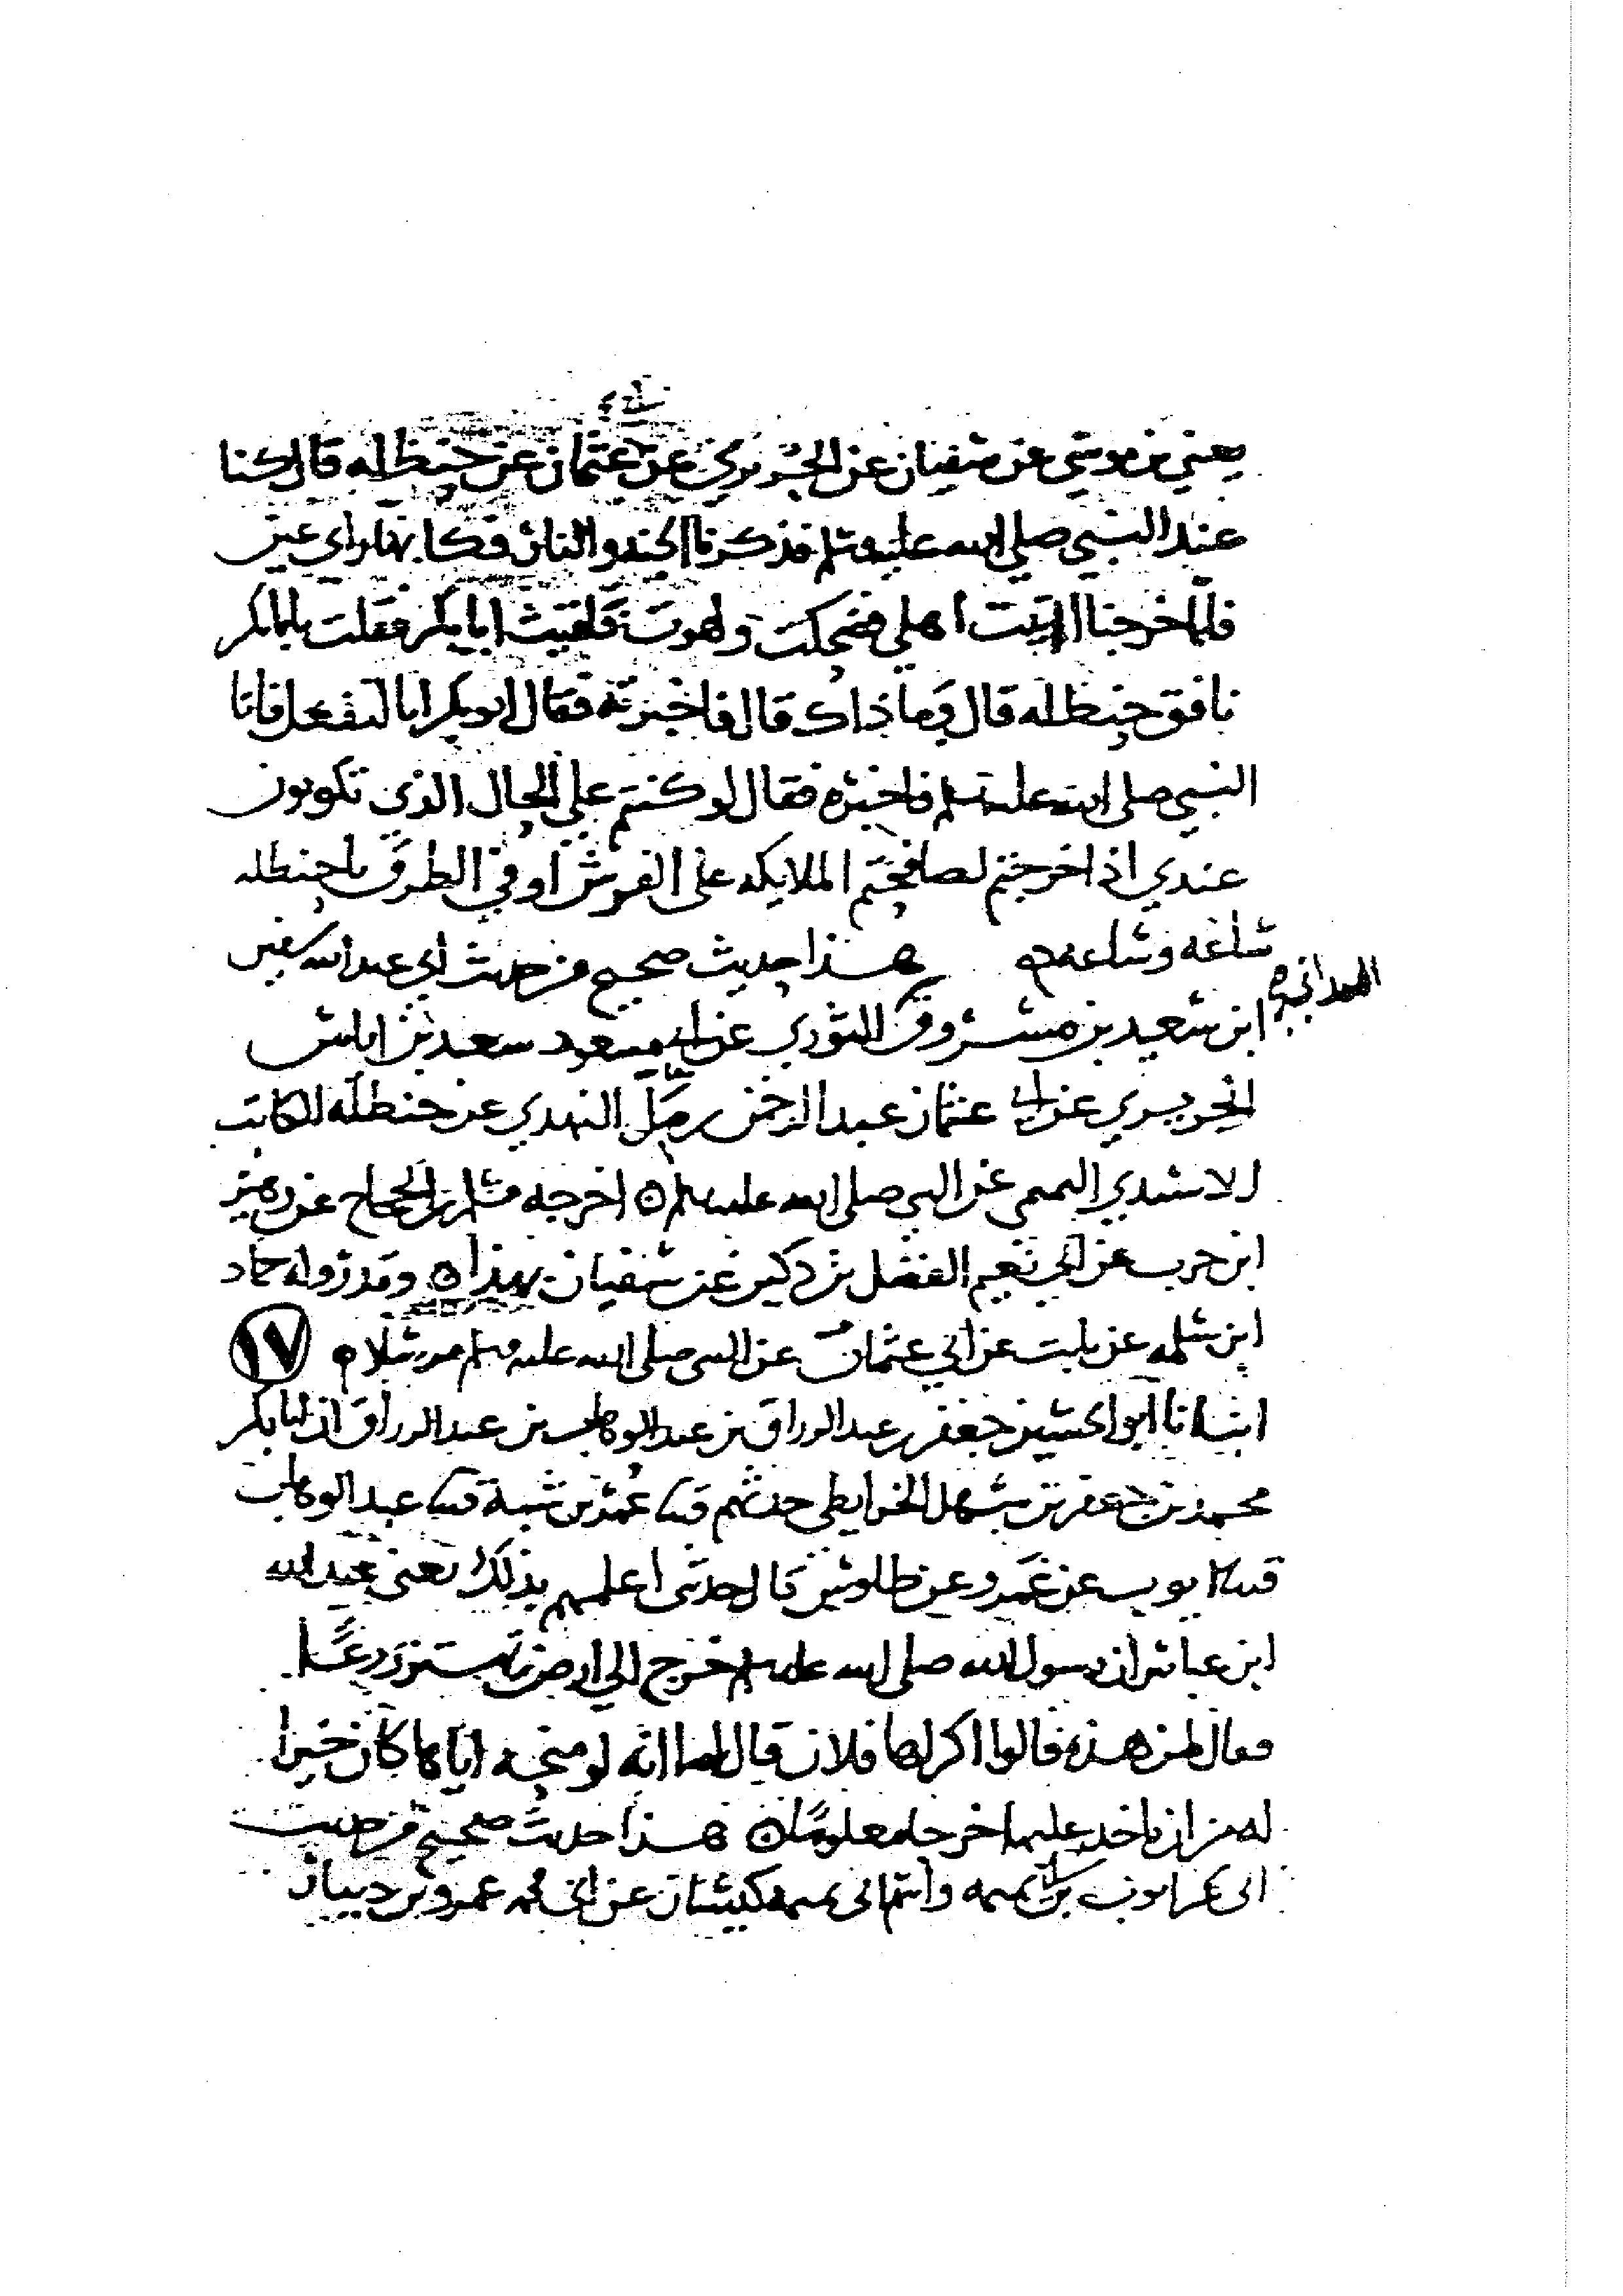 يعني بن موسى عن سفيان عن الجريري عن ابي عثمان عن حنظله قال كنا
عند النبي صلى الله عليه وسلم فذكرنا الجنه والنار فكانهما راي عين
فلما خرجنا اتيت اهلي فضحكت ولهوت فلقيت ابا بكر فقلت يابا بكر
نافق حنظله قال وما ذاك قال فاخبرته فقال ابو بكر انا لنفعل فاتا
النبي صلى الله عليه وسلم فاخبره فقال لو كنتم على الحال الذي تكونون
عندي اذا خرجتم لصافحتم الملايكه على الفرش او في الطرق يا حنظله
ساعه وساعه هذا حديث صحيح من حديث ابي عبد الله سفين
ابن سعيد بن مسروق الثوري عن ابي مسعود سعيد بن اياس
الجريري عن ابي عثمان عبد الرحمن بن مل النهدي عن حنظله الكاتب
الاسيدي التميمي عن النبي صلى الله عليه وسلم اخرجه مسلم بن الحجاج عن زهير
ابن حرب عن ابي نعيم الفضل بن دكين عن سفيان بهذا وقد رواه حماد
ابن سلمه عن ثابت عن ابي عثمان عن النبي صلى الله عليه وسلم مرسلا ١٧
انبانا ابو الحسين جعفر بن عبد الرزاق بن عبد الوهاب بن عبد الرزاق ان ابا بكر
محمد بن جعفر بن سهل الخرايطي حدثهم قثنا عمر بن شبة قثنا عبد الوهاب
قثنا ايوب عن عمرو عن طاوس قال حدثني اعلمهم بذلك يعني عبد الله
ابن عباس ان رسول الله صلى الله عليه وسلم خرج الى ارض تهتز زرعا
فقال لمن هذه فقالوا اكراها فلان قال اما انه لو منحه اياها كان خيرا
له من ان ياخذ عليها خرجا معلوما هذا حديث صحيح من حديث
ابي بكر ايوب بن ابي تميمه واسم ابي تميمه كيسان عن ابي محمد عمرو بن دينار